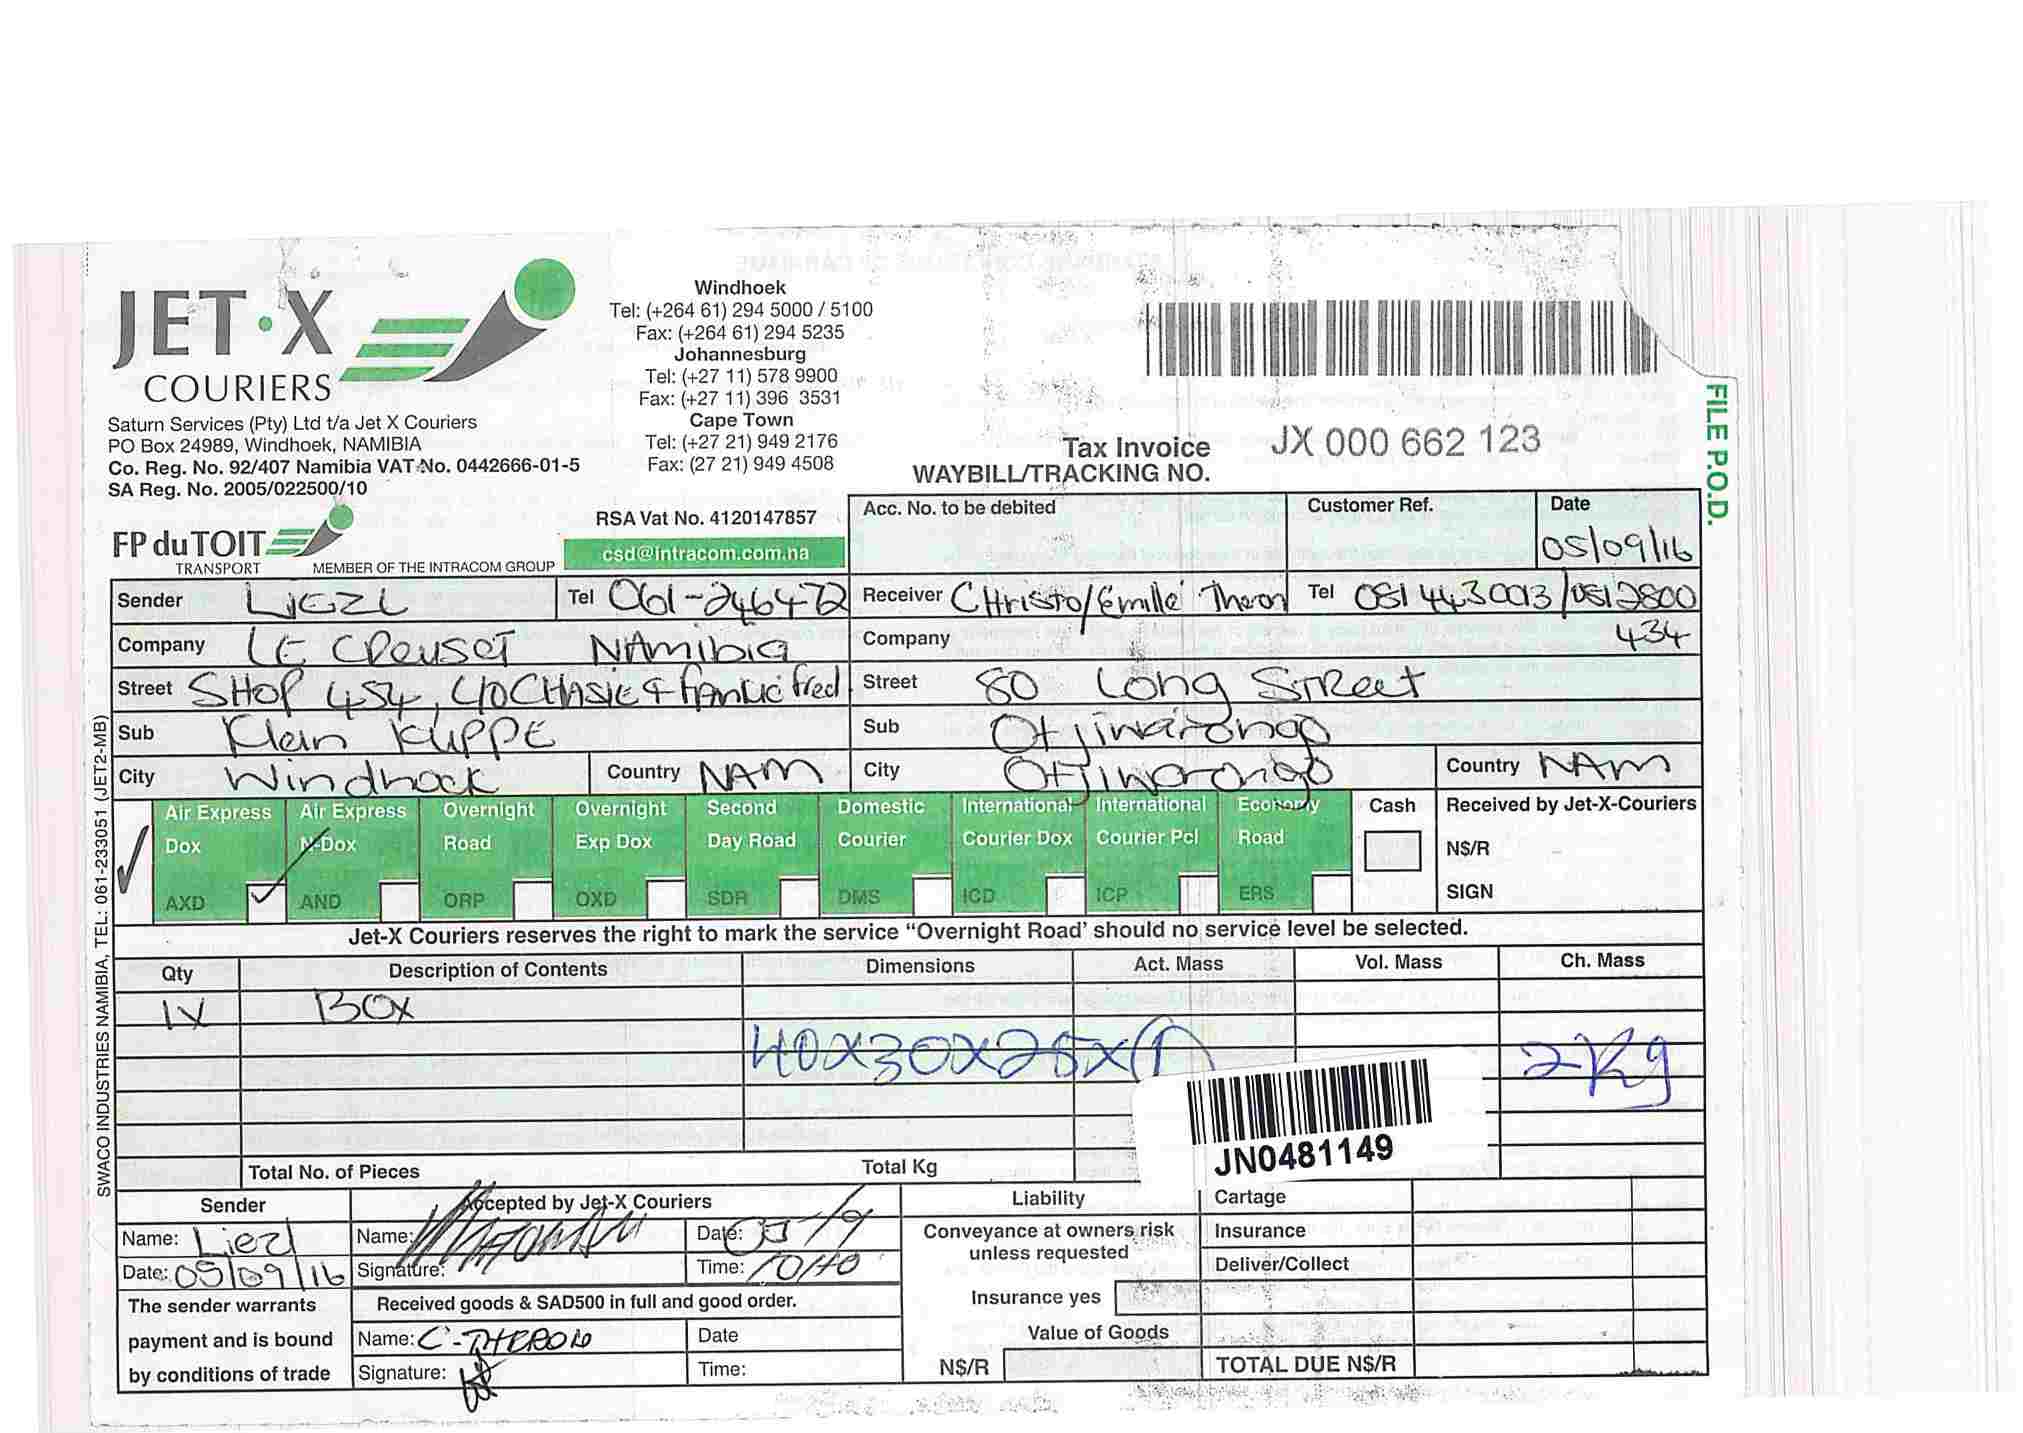 JET·X
COURIERS
Saturn Services (Pty) Ltd t/a Jet X Couriers
PO Box 24989, Windhoek, NAMIBIA
Co. Reg. No. 92/407 Namibia VAT No. 0442666-01-5
SA Reg. No. 2005/022500/10
FP du TOIT
TRANSPORT
MEMBER OF THE INTRACOM GROUP
Windhoek
Tel: (+264 61) 294 5000 / 5100
Fax: (+264 61) 294 5235
Johannesburg
Tel: (+27 11) 578 9900
Fax: (+27 11) 396 3531
Cape Town
Tel: (+27 21) 949 2176
Fax: (27 21) 949 4508
RSA Vat No. 4120147857
csd@intracom.com.na
Tax Invoice
WAYBILL/TRACKING NO.
JX 000 662 123
FILE P.O.D.
Acc. No. to be debited
Customer Ref.
Date
05/09/16
Sender LIEZL Tel 061-246472
Receiver CHristo/Emille Theron Tel 081 443 0013/081 2800
434
Company LE CREUSET NAMibiA
Company
Street SHOP 454, C/O CHASIE & FRANKIE Fred
Street 80 Long Street
Sub Klein KUPPE
Sub Otjiwarongo
City Windhoek Country NAM
City Otjiwarongo Country NAM
Air Express Dox AXD
Air Express N-Dox AND
Overnight Road ORP
Overnight Exp Dox OXD
Second Day Road SDR
Domestic Courier DMS
International Courier Dox ICD
International Courier Pcl ICP
Economy Road ERS
Cash
Received by Jet-X-Couriers
N$/R
SIGN
Jet-X Couriers reserves the right to mark the service “Overnight Road’ should no service level be selected.
Qty Description of Contents Dimensions Act. Mass Vol. Mass Ch. Mass
1X BOX
40X30X25X(1) 2Kg
JN0481149
Total No. of Pieces Total Kg
Sender
Name: Liezl
Date: 05/09/16
The sender warrants
payment and is bound
by conditions of trade
Accepted by Jet-X Couriers
Name: Date: 05/9
Signature: Time: 10H0
Received goods & SAD500 in full and good order.
Name: C-THERON Date
Signature: Time:
Liability
Conveyance at owners risk
unless requested
Insurance yes
Value of Goods
N$/R
Cartage
Insurance
Deliver/Collect
TOTAL DUE N$/R
SWACO INDUSTRIES NAMIBIA, TEL: 061-233051 (JET2-MB)